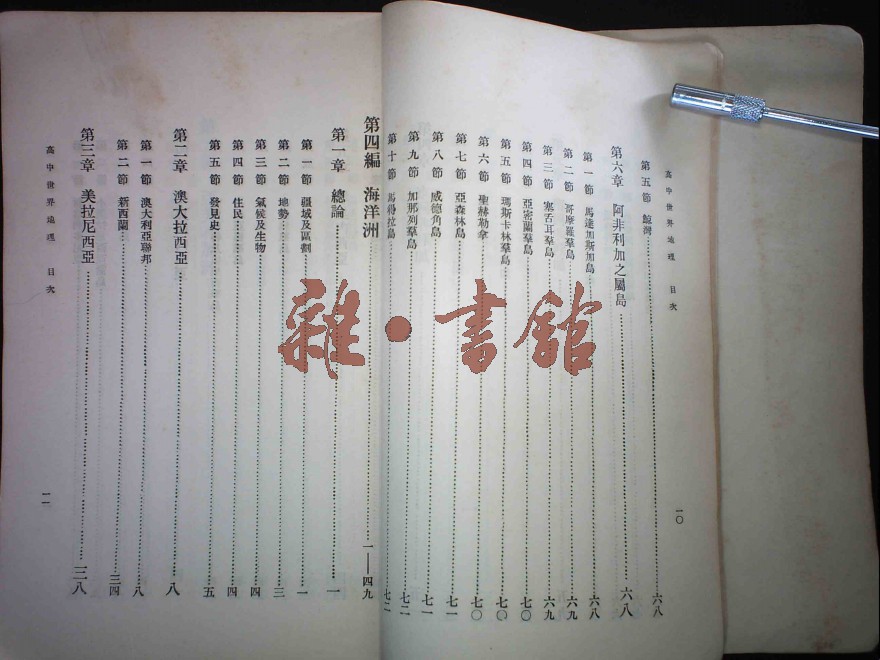 高中世界地理 目次
一〇
第五節 鯨灣 六八
第六章 阿非利加之屬島 六八
第一節 馬達加斯加島 六八
第二節 哥摩羅羣島 六九
第三節 塞舌耳羣島 六九
第四節 亞密蘭羣島 七〇
第五節 瑪斯卡林羣島 七〇
第六節 聖赫勒拿 七〇
第七節 亞森林島 七一
第八節 威德角島 七一
第九節 加那列羣島 七二
第十節 馬得拉島 七二
第四編 海洋洲 一——四九
第一章 總論 一
第一節 疆域及區劃 一
第二節 地勢 三
第三節 氣候及生物 四
第四節 住民 四
第五節 發見史 五
第二章 澳大拉西亞 八
第一節 澳大利亞聯邦 八
第二節 新西蘭 三四
第三章 美拉尼西亞 三八
高中世界地理 目次
一一
雜·書館